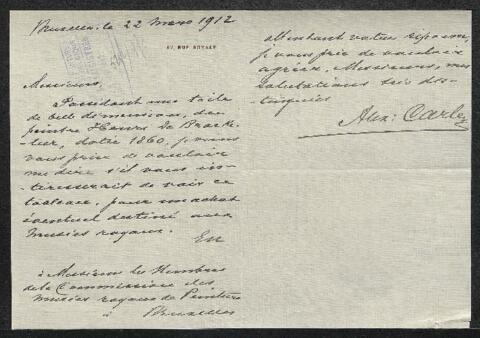 Bruxelles, le 22 Mars 1912
67, RUE ROYALE
Messieurs,
Possédant une toile
de belle dimension, du
peintre Henri De Braeke-
leer, datée 1860, je vous
vous prie de vouloir
me dire s'il vous in-
téresserait de voir ce
tableau, pour un achat
éventuel destiné aux
musées royaux.
En
à Messieurs les Membres
de la Commission des
musées royaux de Peinture
à Bruxelles
attendant votre réponse,
je vous prie de vouloir
agréer, Messieurs, mes
salutations très dis-
tinguées
Alex: Carlez